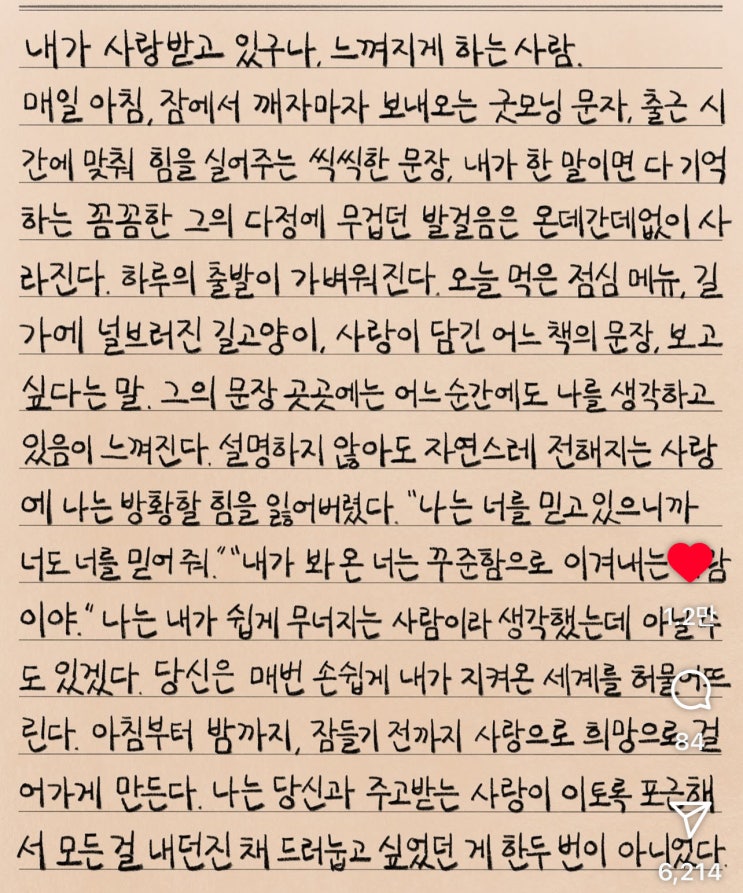 내가 사랑받고 있구나, 느껴지게 하는 사람.
매일 아침, 잠에서 깨자마자 보내오는 굿모닝 문자, 출근 시
간에 맞춰 힘을 실어주는 씩씩한 문장, 내가 한 말이면 다 기억
하는 꼼꼼한 그의 다정에 무겁던 발걸음은 온데간데없이 사
라진다. 하루의 출발이 가벼워진다. 오늘 먹은 점심 메뉴, 길
가에 널브러진 길고양이, 사랑이 담긴 어느 책의 문장, 보고
싶다는 말. 그의 문장 곳곳에는 어느 순간에도 나를 생각하고
있음이 느껴진다. 설명하지 않아도 자연스레 전해지는 사랑
에 나는 방황할 힘을 잃어버렸다. "나는 너를 믿고 있으니까
너도 너를 믿어 줘." "내가 봐 온 너는 꾸준함으로 이겨내는 람
이야." 나는 내가 쉽게 무너지는 사람이라 생각했는데 아닐 수
1.2만
도 있겠다. 당신은 매번 손쉽게 내가 지켜온 세계를 허물어뜨
린다. 아침부터 밤까지, 잠들기 전까지 사랑으로 희망으로 걸
84
어가게 만든다. 나는 당신과 주고받는 사랑이 이토록 포근해
서 모든 걸 내던진 채 드러눕고 싶었던 게 한두 번이 아니었다.
6,214